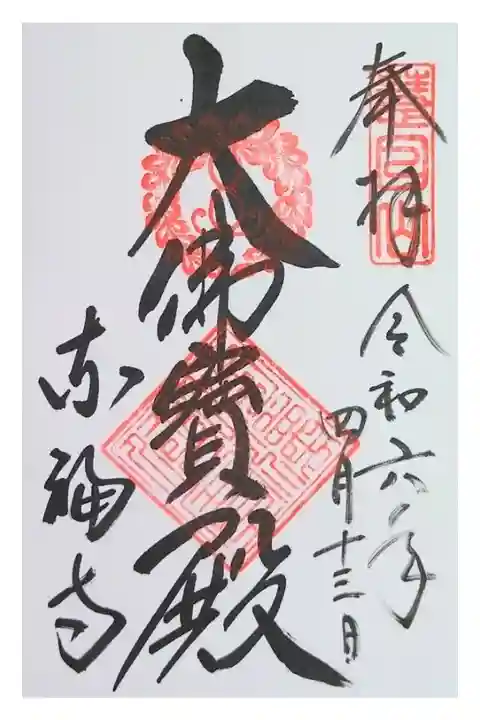 奉拝
令和六年
四月十三日
大佛寳殿
東福寺